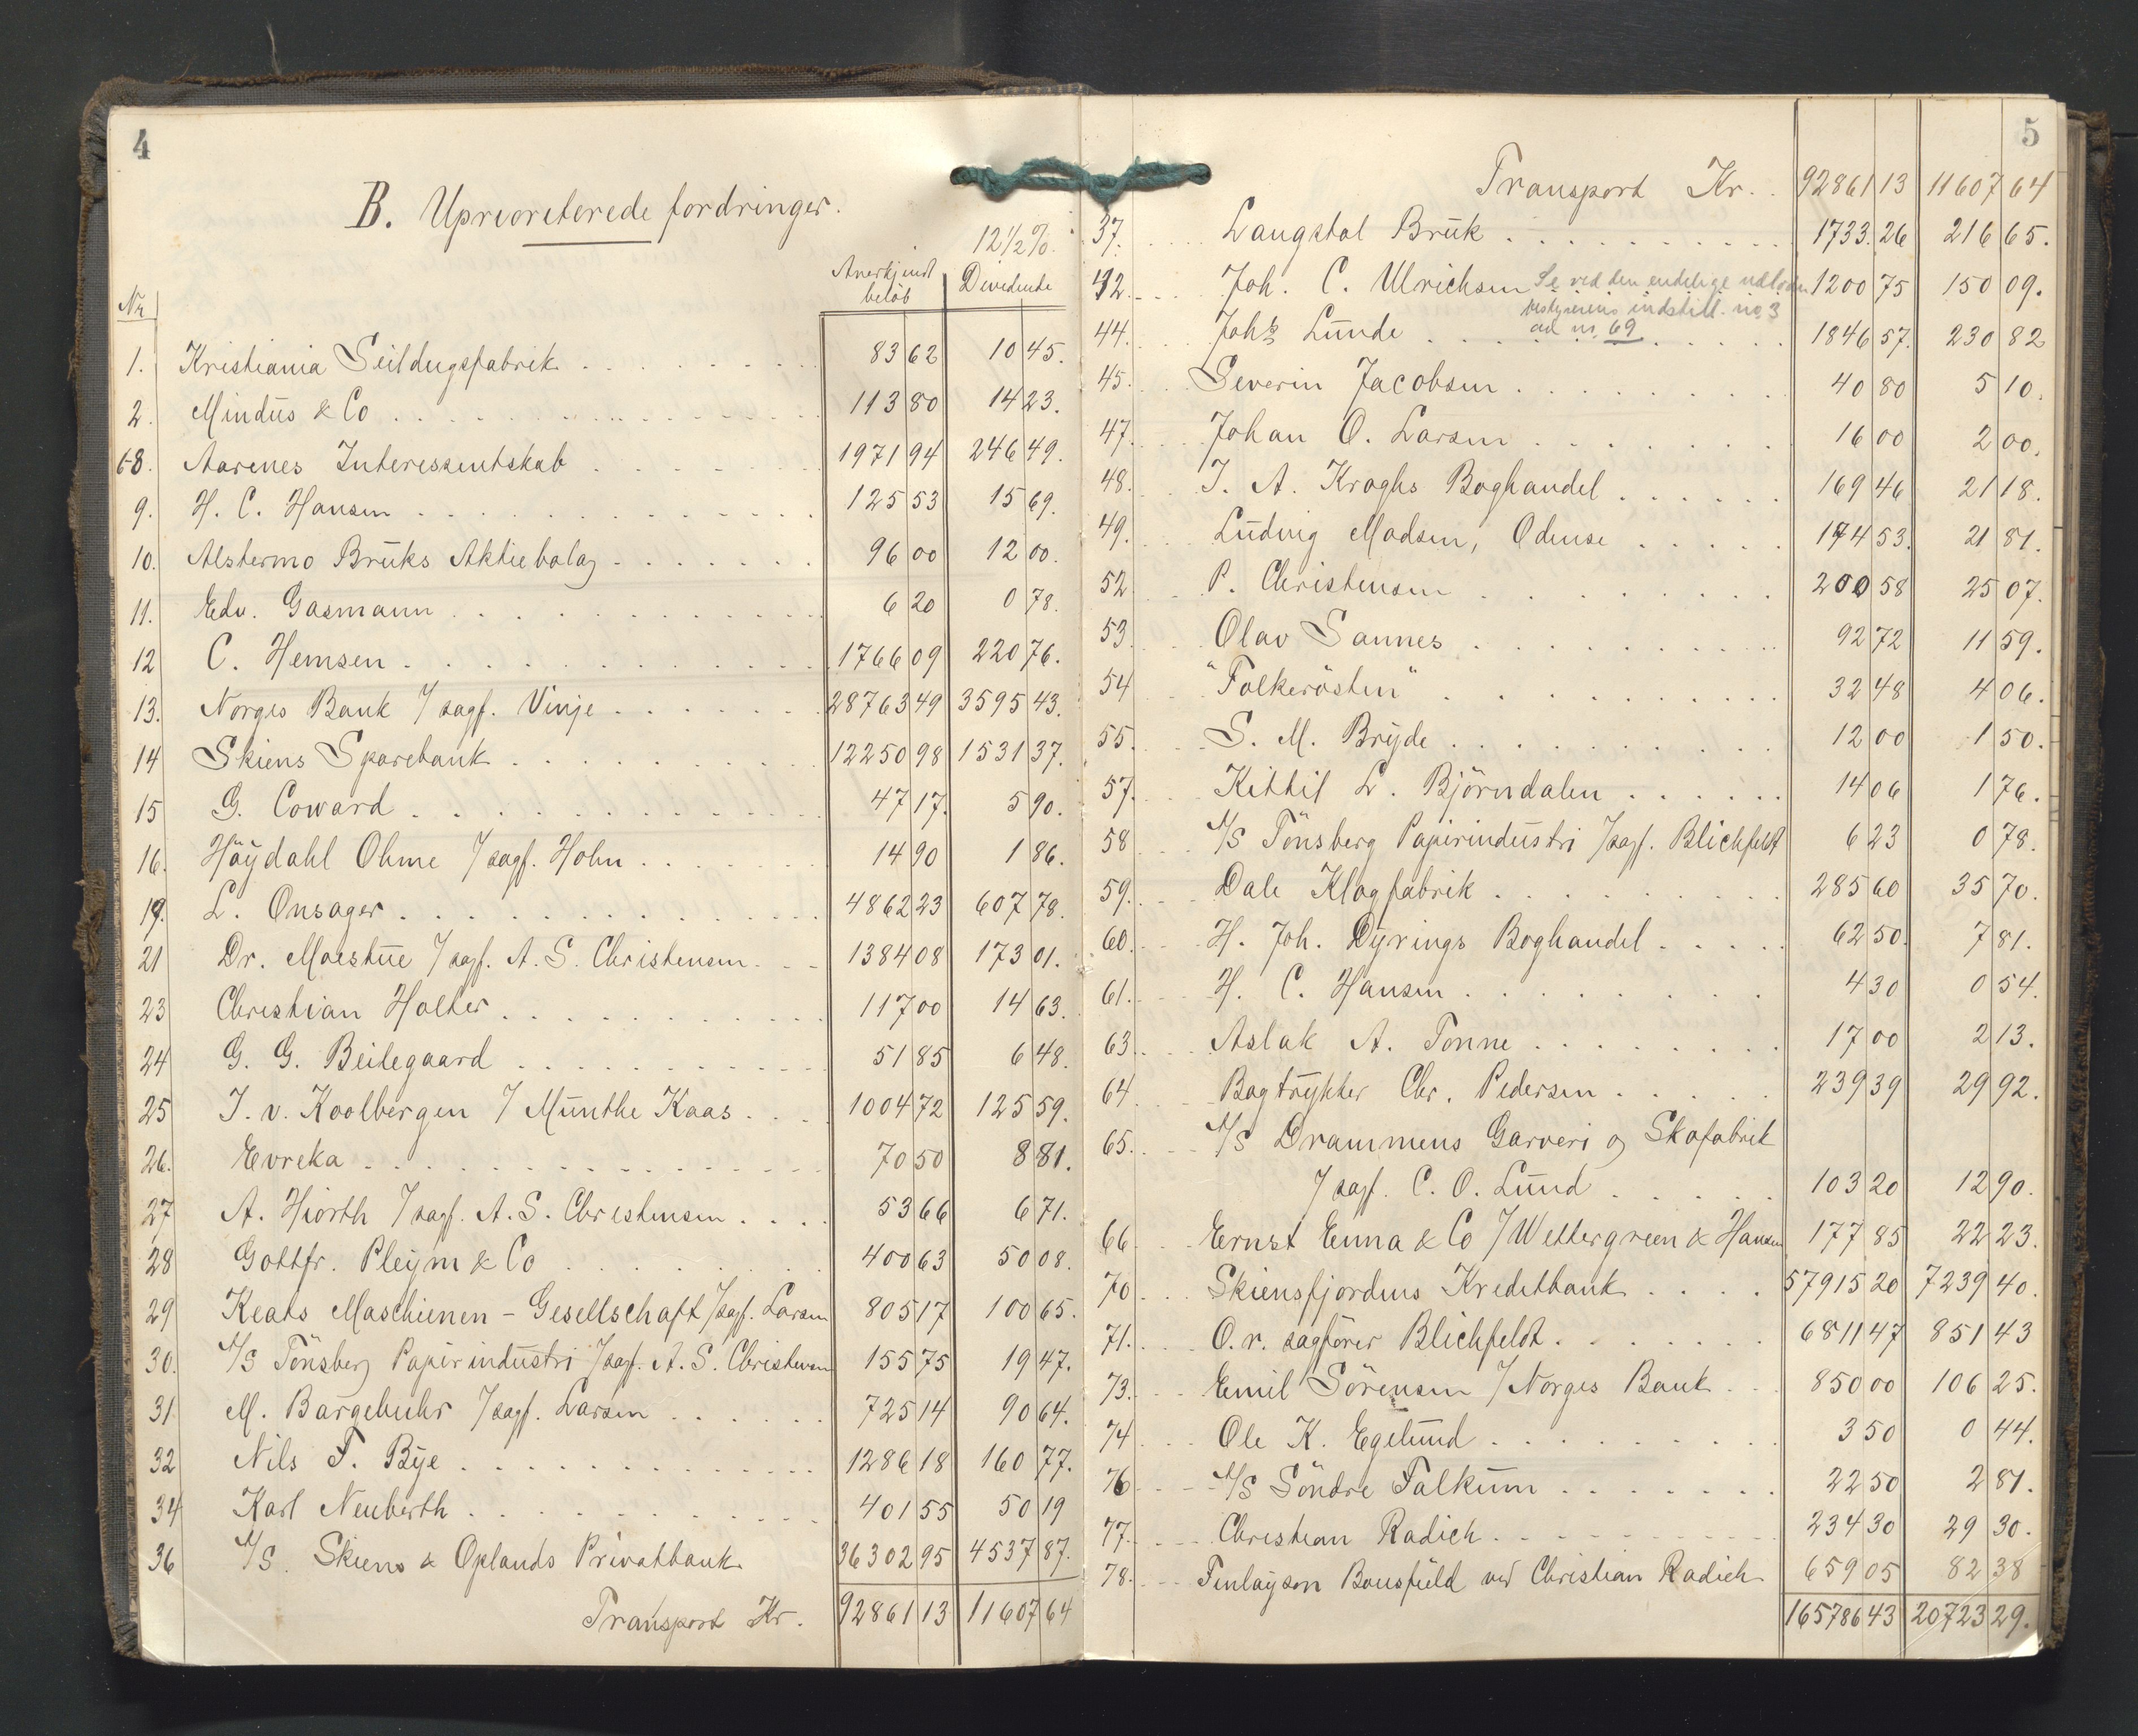 4
B. Uprioriterede fordringer.
12½%.
Nr Anerkjendt beløb Dividende
1. Kristiania Seildugsfabrik 83 62 10 45.
2. Mindüs & Co 113 80 14 23.
68. Aarenes Interessentskab 1971 94 246 49.
9. H. C. Hansen 125 53 15 69.
10. Alstermo Brüks Aktiebolag 96 00 12 00.
11. Edv. Gasmann 6 20 0 78.
12 C. Hemsen 1766 09 220 76.
13. Norges Bank / sagf. Vinje 28763 49 3595 43.
14 Skiens Sparebank 12250 98 1531 37.
15 G. Coward 47 17. 5 90.
16. Höÿdahl Ohme / sagf. Holm 14 90 1 86.
19. L. Onsager 4862 23 607 78.
21 Dr. Moestüe / sagf. A. S. Christensen 1384 08 173 01.
23 Christian Holter 117 00 14 63.
24 G. G. Beitegaard 51 85 6 48.
25 J. v. Koolbergen / Münthe Kaas 1004 72 125 59.
26. Evreka 70 50 8 81.
27 A. Hiorth / sagf. A. S. Christensen 53 66 6 71.
28 Gottfr. Pleÿm & Co 400 63 50 08.
29 Keats Maschienen - Gesellschaft / sagf. Larsen 805 17 100 65.
30. A/S Tönsberg Papirindüstri / sagf. A. S. Christensen 155 75 19 47.
31 M. Bargebuhr / sagf. Larsen 725 14 90 64.
32 Nils F. Bÿe 1286 18 160 77.
34 Karl Neuberth 401 55 50 19
36 A/S. Skiens & Oplands Privatbank 36302 95 4537 87.
Transport Kr. 92861 13 11607 64
5
Transport Kr. 92861 13 11607 64
37. Langstol Brük 1733. 26 216 65.
42. Joh. C. Ulrichsen 1200 75 150 09.
Se ved den endelige udlodn.
bestyrerens indstill. no. 3
ad nr. 69
44. Johs Lünde 1846 57. 230 82
45. Severin Jacobsen 40 80 5 10.
47. Johan O. Larsen 16 00 2 00.
48. J. A. Kroghs Boghandel 169 46 21 18.
49. Lüdvig Madsen, Odense 174 53. 21 81.
52 P. Christensen 200 58 25 07.
53 Olav Sannes 92 72 11 59.
54 "Folkerösten" 32 48 4 06.
55. S. M. Brÿde 12 00 1 50.
57. Kittil L. Björndalen 14 06 1 76.
58 A/S Tönsberg Papirindüstri / sagf. Blichfeldt 6 23 0 78.
59. Dale Klagfabrik 285 60 35 70.
60. H. Joh. Dÿrings Boghandel 62 50. 7 81.
61. H. C. Hansen 4 30 0 54.
63. Aslak A. Tonne 17 00 2 13.
64 Bogtrÿkker Chr. Pedersen 239 39 29 92.
65. A/S Drammens Garveri og Skofabrik
/ sagf. C. O. Lünd 103 20 12 90.
66. Ernst Enna & Co / Wettergreen & Hansen 177 85 22 23.
70 Skiensfjordens Kreditbank 57915 20 7239 40.
71. O. r. sagförer Blichfeldt 6811 47 851 43
73. Emil Sörensen / Norges Bank 850 00 106 25.
74 Ole K. Egelünd 3 50 0 44.
76 A/S Söndre Falküm 22 50 2 81.
77. Christian Radich 234 30 29 30.
78. Finlayson Bousfield ved Christian Radich 659 05 82 38
165786 43 20723 29.